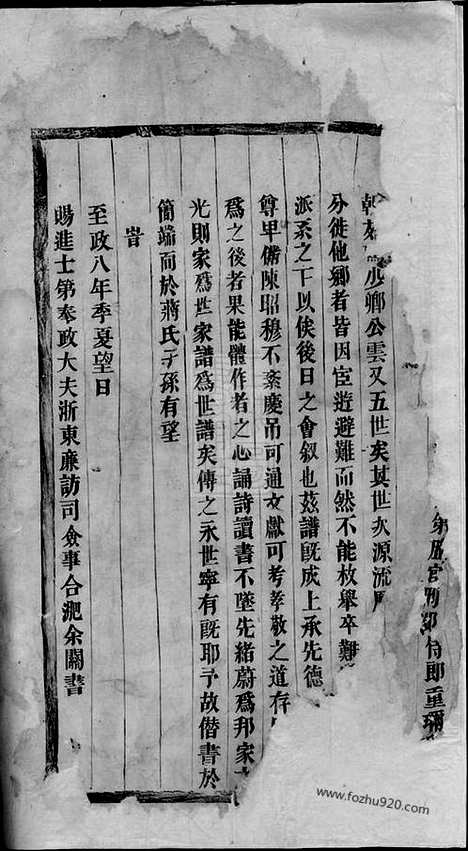 弟歷官刑部侍郎重珍
少卿公雲又五世矣其世次源流
分徙他鄉者皆因宦遊避難而然不能枚舉卒難
派系之下以俟後日之會叙也茲譜旣成上承先德
尊卑備陳昭穆不紊慶吊可通文獻可考孝敬之道存
爲之後者果能體作者之心誦詩讀書不墜先緒蔚爲邦家
光則家爲世家譜爲世譜矣傳之永世寧有旣耶予故僭書於
簡端而於蔣氏子孫有望
旹
至政八年季夏望日
賜進士第奉政大夫浙東廉訪司僉事合淝余闕書
www.fozhu920.com